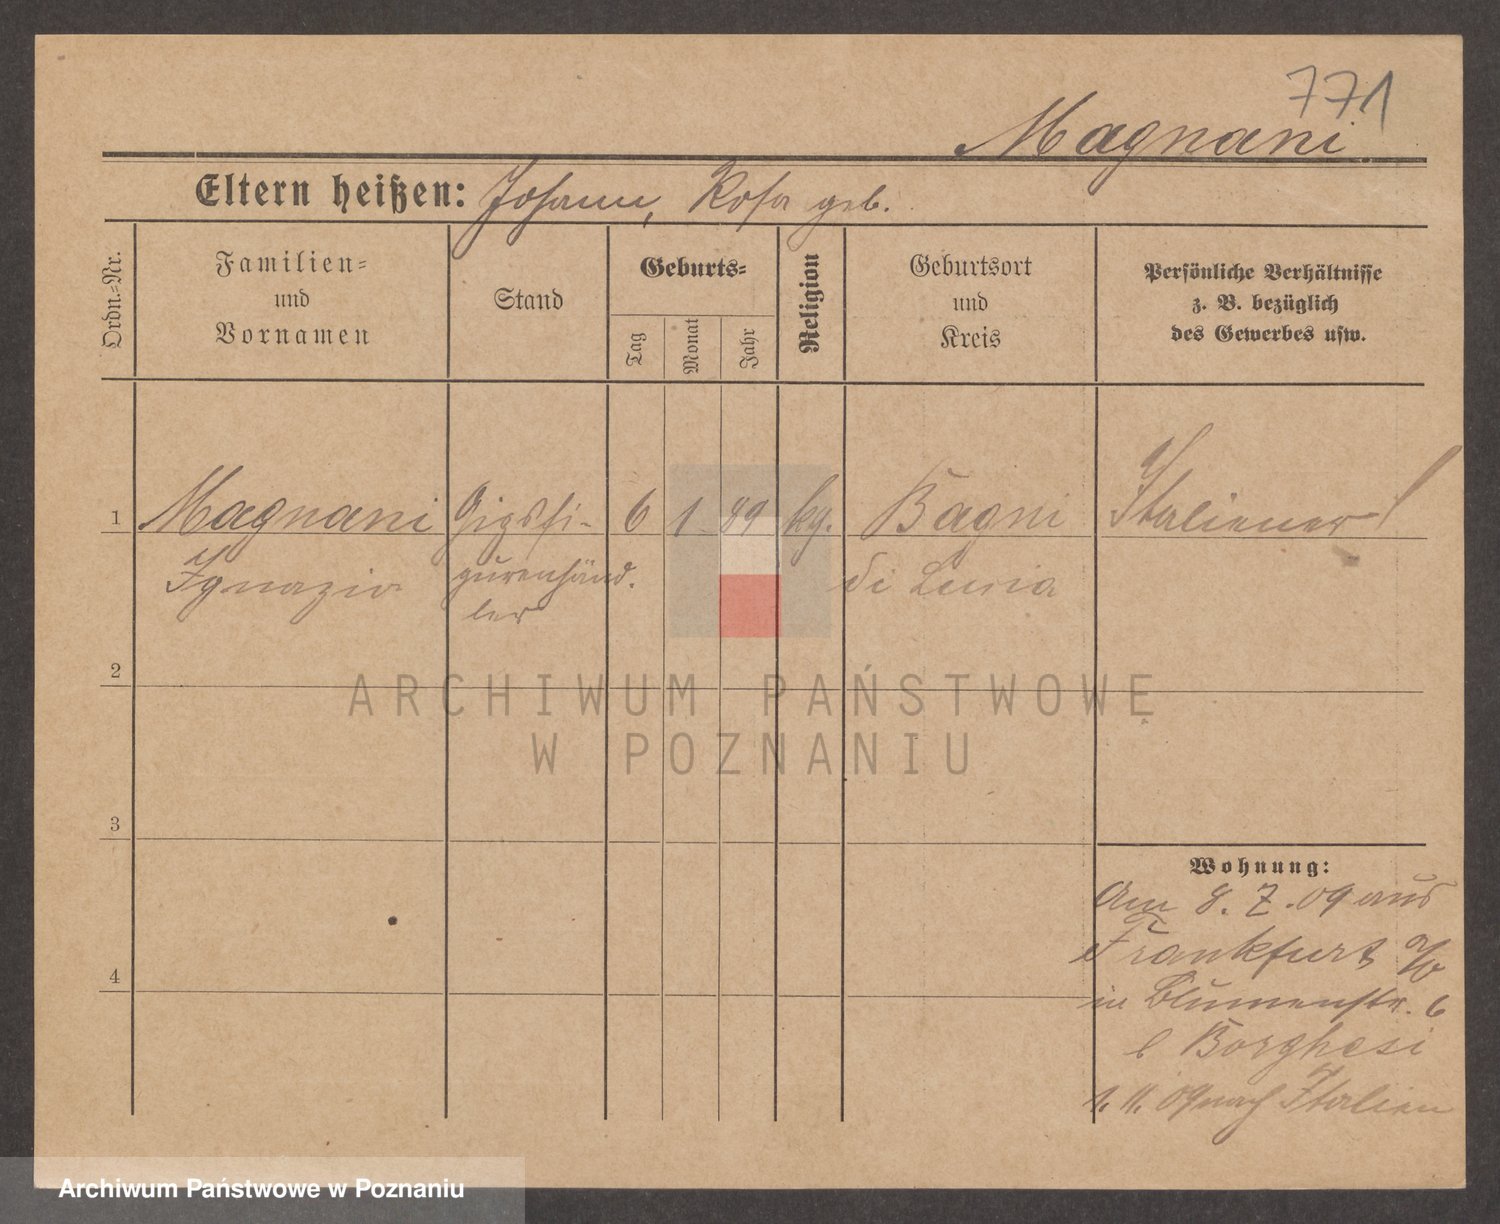 771
Magnani
Eltern heißen: Johann, Rosa geb.
Ordn.-Nr.
Familien-
und
Vornamen
Stand
Geburts-
Tag
Monat
Jahr
Religion
Geburtsort
und
Kreis
Persönliche Verhältnisse
z. B. bezüglich
des Gewerbes usw.
1 Magnani Gipsfi- 6 1 89 kg. Bagni Italiener!
Ignazio gurenhänd. di Lucia
ler
2
ARCHIWUM PAŃSTWOWE
W POZNANIU
3
Wohnung:
Am 8. 7. 09 aus
Frankfurt a/O
4
in Blumenstr. 6
b Borghesi
1. 11. 09 nach Italien
Archiwum Państwowe w Poznaniu